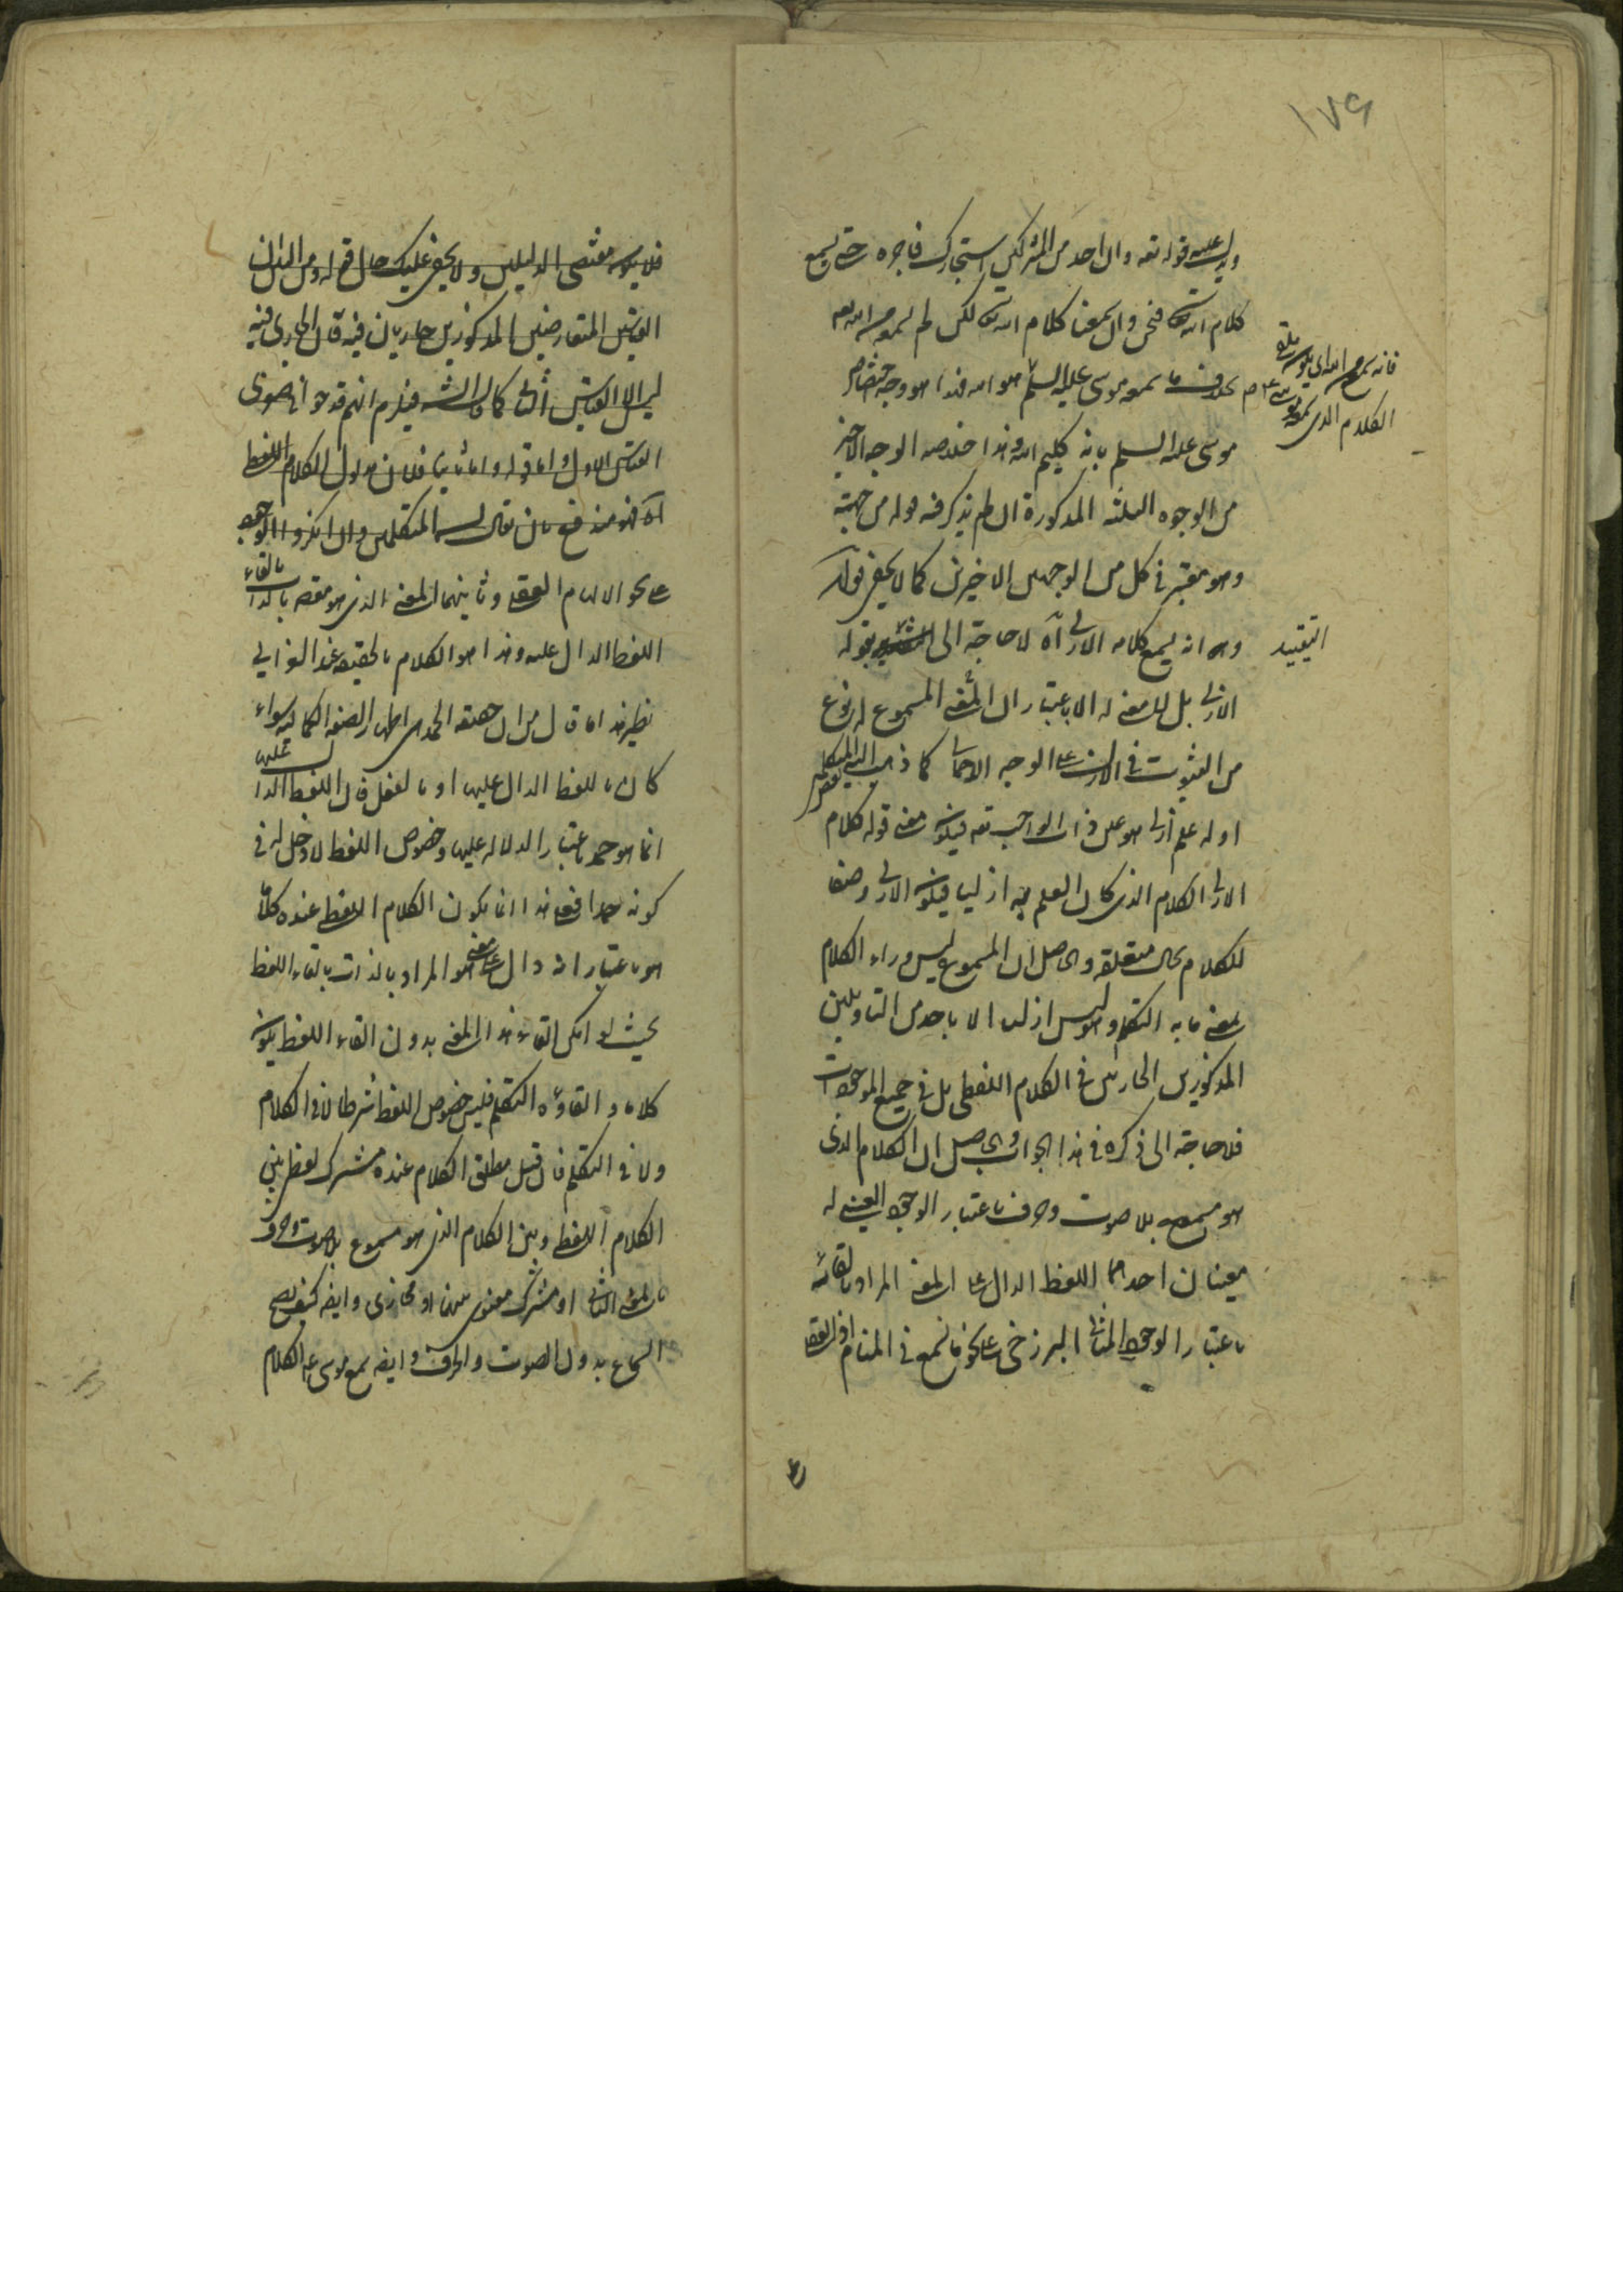 ١٧٩
ويدل عليه قوله تعه وان احد من المشركين استجارك فاجره حتى يسمع
كلام الله فنحن وان سمعنا كلام الله لكن لم نسمعه من الله تعه
بخلاف ما سمعه موسى عليه السلم هو امه فهذا هو وجه اختصاص
موسى عليه السلم بانه كليم الله وهذا خلاصه الوجه الاخير
من الوجوه الثلثه المذكورة ان لم يذكر فيه قوله من جهته
وهو معتبر في كل من الوجهين الاخيرين كما لا يخفى قوله
وهو انه يسمع كلامه الازلي آه لا حاجة الى بقوله
التقييد
الازلي بل لا معنى له الا باعتبار ان المعنى المسموع له نوع
من الثبوت في الازل على الوجه كما ذهب اليه
او له علم ازلي هو عين ذات الواجب تعه فيكون معنى قوله كلام
الازلي الكلام الذي كان العلم به ازليا فيكون الازلي وصفا
للكلام بحال متعلقه والحاصل ان المسموع ليس وراء الكلام
بمعنى ما به التكلم وهو ليس ازليا الا باحد من التاويلين
المذكورين الجاريين في الكلام اللفظي بل في جميع الموجودات
فلا حاجة الى ذكره في هذا الجواب والحاصل ان الكلام الذي
هو مسموع بلا صوت وحرف باعتبار الوجود العيني له
معنيان احدهما اللفظ الدال على المعنى المراد بالقائه
باعتبار الوجود المثالي البرزخي على نحو ما نسمع في المنام
فلا يكون مقتضى الدليلين ولا يخفى عليك حال قوله ومن البين ان
القياسين المتعارضين المذكورين جاريان فيه فان الجاري فيه
ليس الا القياس الثاني كما قال الش فيلزم انهم قدحوا في صغرى
القياس الاول واما قوله واما ثانيا فلان مدلول الكلام اللفظي
آه فهو مندفع بان يقال ان المتكلمين وان انكروا الوجود
على نحو الالهام العقلي وثانيهما المعنى الذي هو مقصود بالذات بالقاء
اللفظ الدال عليه وهذا هو الكلام بالحقيقه عند الغزالي
نظير هذا ما قال من ان حقيقه الحمد هي اظهار الصفه الكماليه سواء
كان باللفظ الدال عليها او بالفعل فان اللفظ الدال عليها
انما هو حمد باعتبار الدلاله عليها وخصوص اللفظ لا دخل له في
كونه حمدا فعلى هذا انما يكون الكلام اللفظي عنده كلاما
هو باعتبار انه دال على معنى هو المراد بالذات بالقاء اللفظ
بحيث لو امكن القاء هذا المعنى بدون القاء اللفظ يكون
كلاما والقاؤه التكلم فليس خصوص اللفظ شرطا لا في الكلام
ولا في التكلم فان قيل مطلق الكلام عنده مشترك لفظي بين
الكلام اللفظي وبين الكلام الذي هو مسموع بلا صوت وحرف
بالمعنى الثاني او مشترك معنوي بينهما او مجازي وايضه كيف يصح
السماع بدون الصوت والحرف وايضه سمع موسى ع الكلام